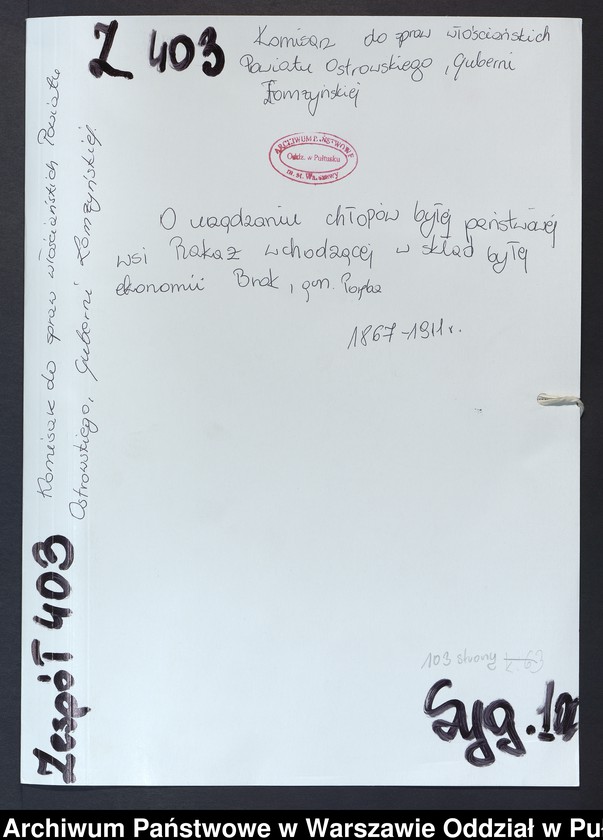 Z 403
Komisarz do spraw włościańskich
Powiatu Ostrowskiego, Guberni
Łomżyńskiej
ARCHIWUM PAŃSTWOWE
Oddz. w Pułtusku
m. st. Warszawy
O urządzaniu chłopów byłej państwowej
wsi Rakaz wchodzącej w skład byłej
ekonomii Brok, gm. Poręba
1867-1911 r.
103 strony
Syg.
Zespół 403
Komisarz do spraw włościańskich Powiatu
Ostrowskiego, Guberni Łomżyńskiej
Archiwum Państwowe w Warszawie Oddział w Puł